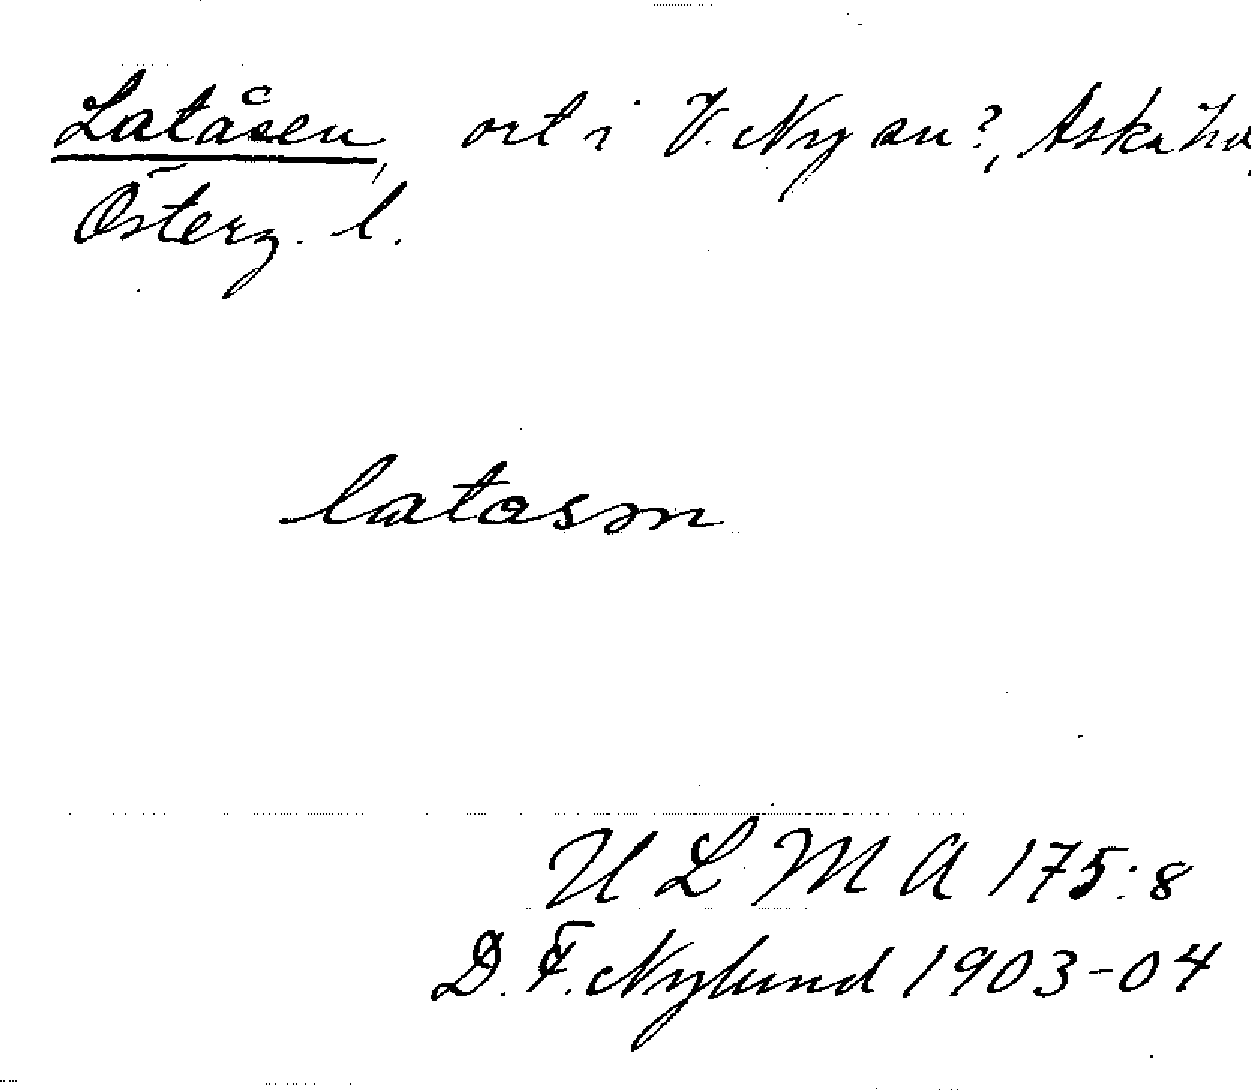 Latåsen, ort i V. Ny sn?, Aska hd,
Österg. l.
latasən
ULMA 175:8
D. F. Nylund 1903-04